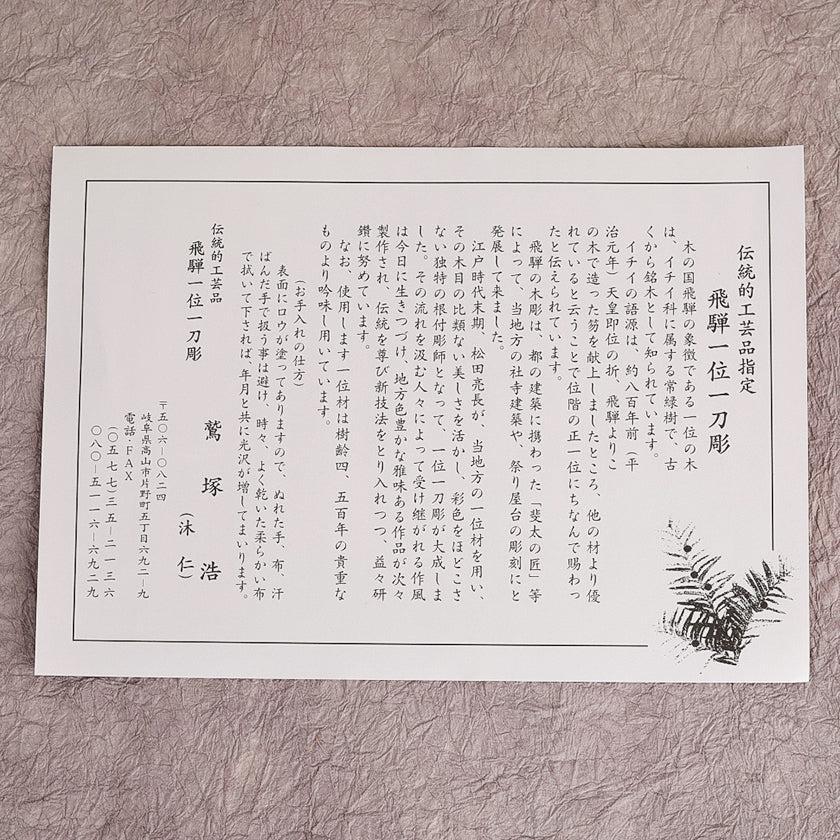 伝統的工芸品指定
飛騨一位一刀彫
木の国飛騨の象徴である一位の木
は、イチイ科に属する常緑樹で、古
くから銘木として知られています。
イチイの語源は、約八百年前(平
治元年)天皇即位の折、飛騨よりこ
の木で造った笏を献上しましたところ、他の材より優
れていると云うことで位階の正一位にちなんで賜わっ
たと伝えられています。
飛騨の木彫は、都の建築に携わった「斐太の匠」等
によって、当地方の社寺建築や、祭り屋台の彫刻にと
発展して来ました。
江戸時代末期、松田亮長が、当地方の一位材を用い、
その木目の比類ない美しさを活かし、彩色をほどこさ
ない独特の根付彫師となって、一位一刀彫が大成しま
した。その流れを汲む人々によって受け継がれる作風
は今日に生きつづけ、地方色豊かな雅味ある作品が次々
製作され、伝統を尊び新技法をとり入れつつ、益々研
鑽に努めています。
なお、使用します一位材は樹齢四、五百年の貴重な
ものより吟味し用いています。
(お手入れの仕方)
表面にロウが塗ってありますので、ぬれた手、布、汗
ばんだ手で扱う事は避け、時々、よく乾いた柔らかい布
で拭いて下されば、年月と共に光沢が増してまいります。
伝統的工芸品
飛騨一位一刀彫
鷲塚浩
(沐仁)
〒五〇六―〇八二四
岐阜県高山市片野町五丁目六九二―九
電話・FAX
(〇五七七)三五―二一三六
〇八〇―五一一六―六九二九